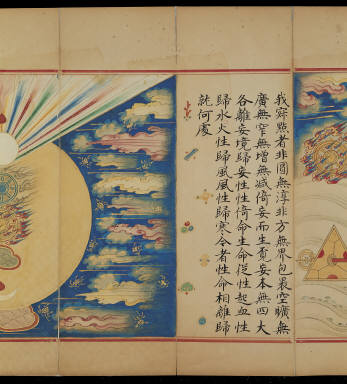 我寂㸃者非圓無淳非方無界包裹空曠無
廣無窄無增無减倚妄而生賁妄本無四大
各離妄境歸妄性性倚命生命從性起血性
歸水火性歸風風性歸寒令者性命相離歸
就何處